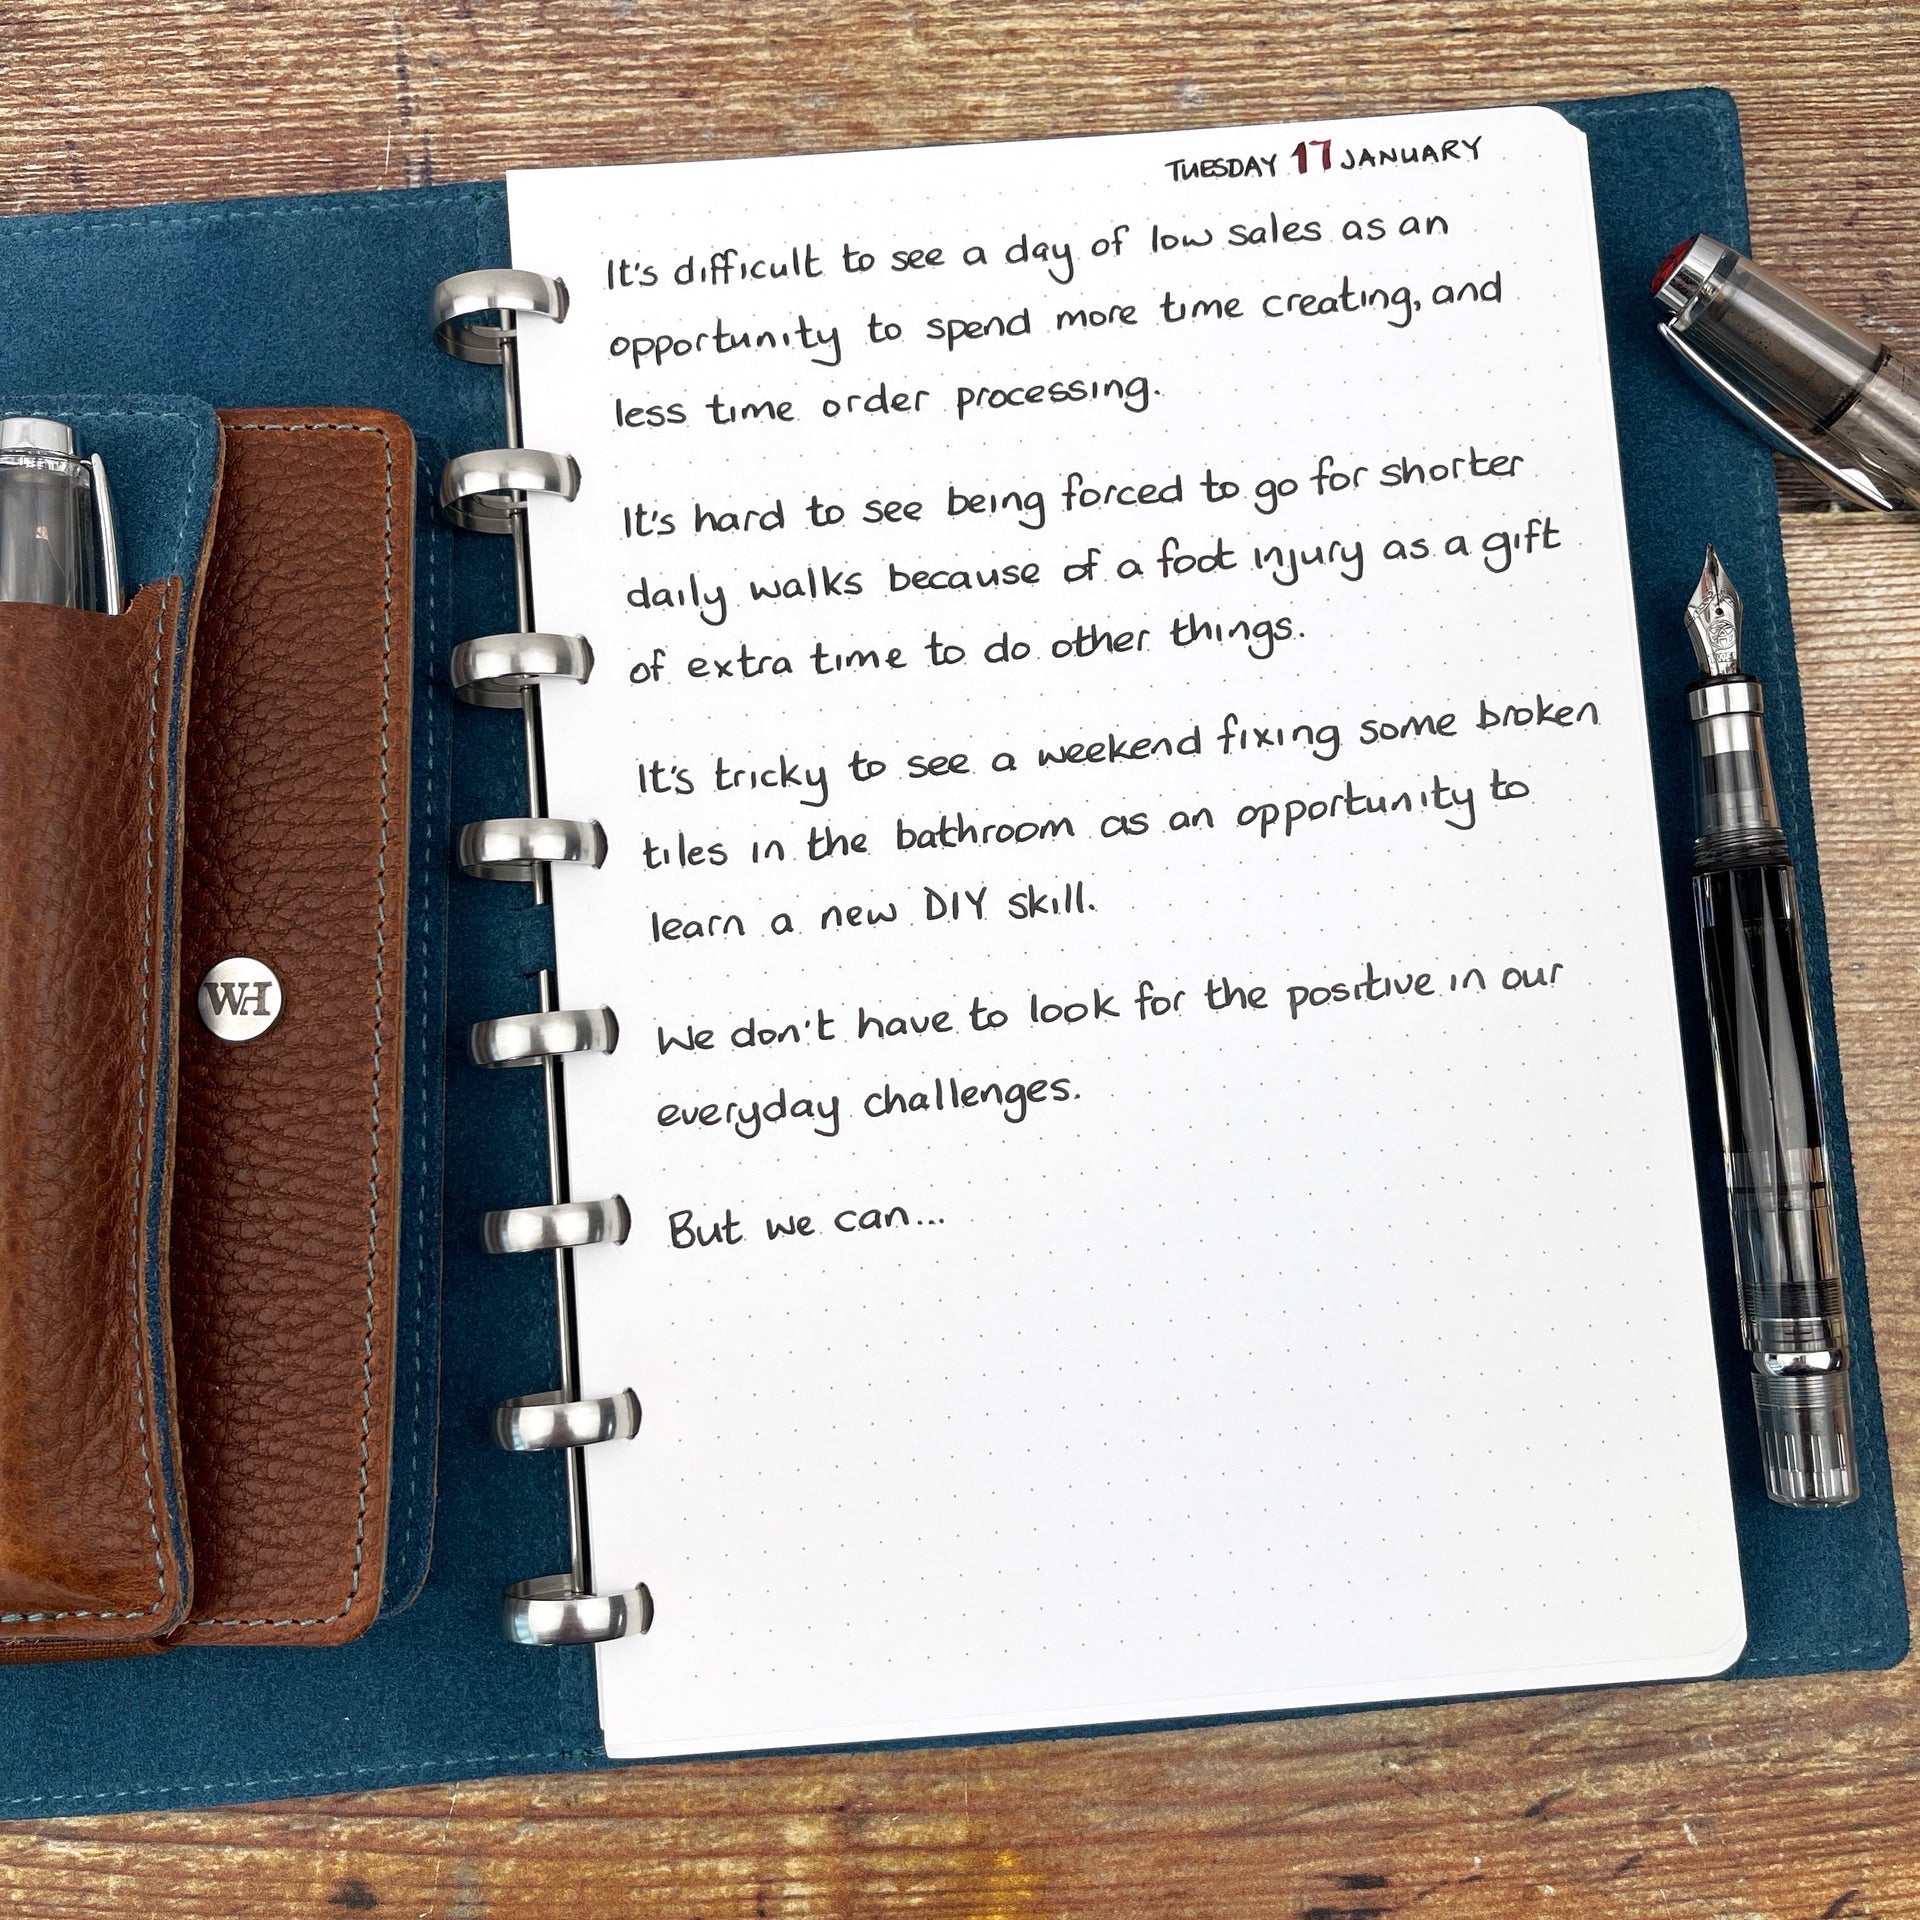 TUESDAY 17 JANUARY
It's difficult to see a day of low sales as an
opportunity to spend more time creating, and
less time order processing.
It's hard to see being forced to go for shorter
daily walks because of a foot injury as a gift
of extra time to do other things.
It's tricky to see a weekend fixing some broken
tiles in the bathroom as an opportunity to
learn a new DIY skill.
We don't have to look for the positive in our
everyday challenges.
But we can...
WH